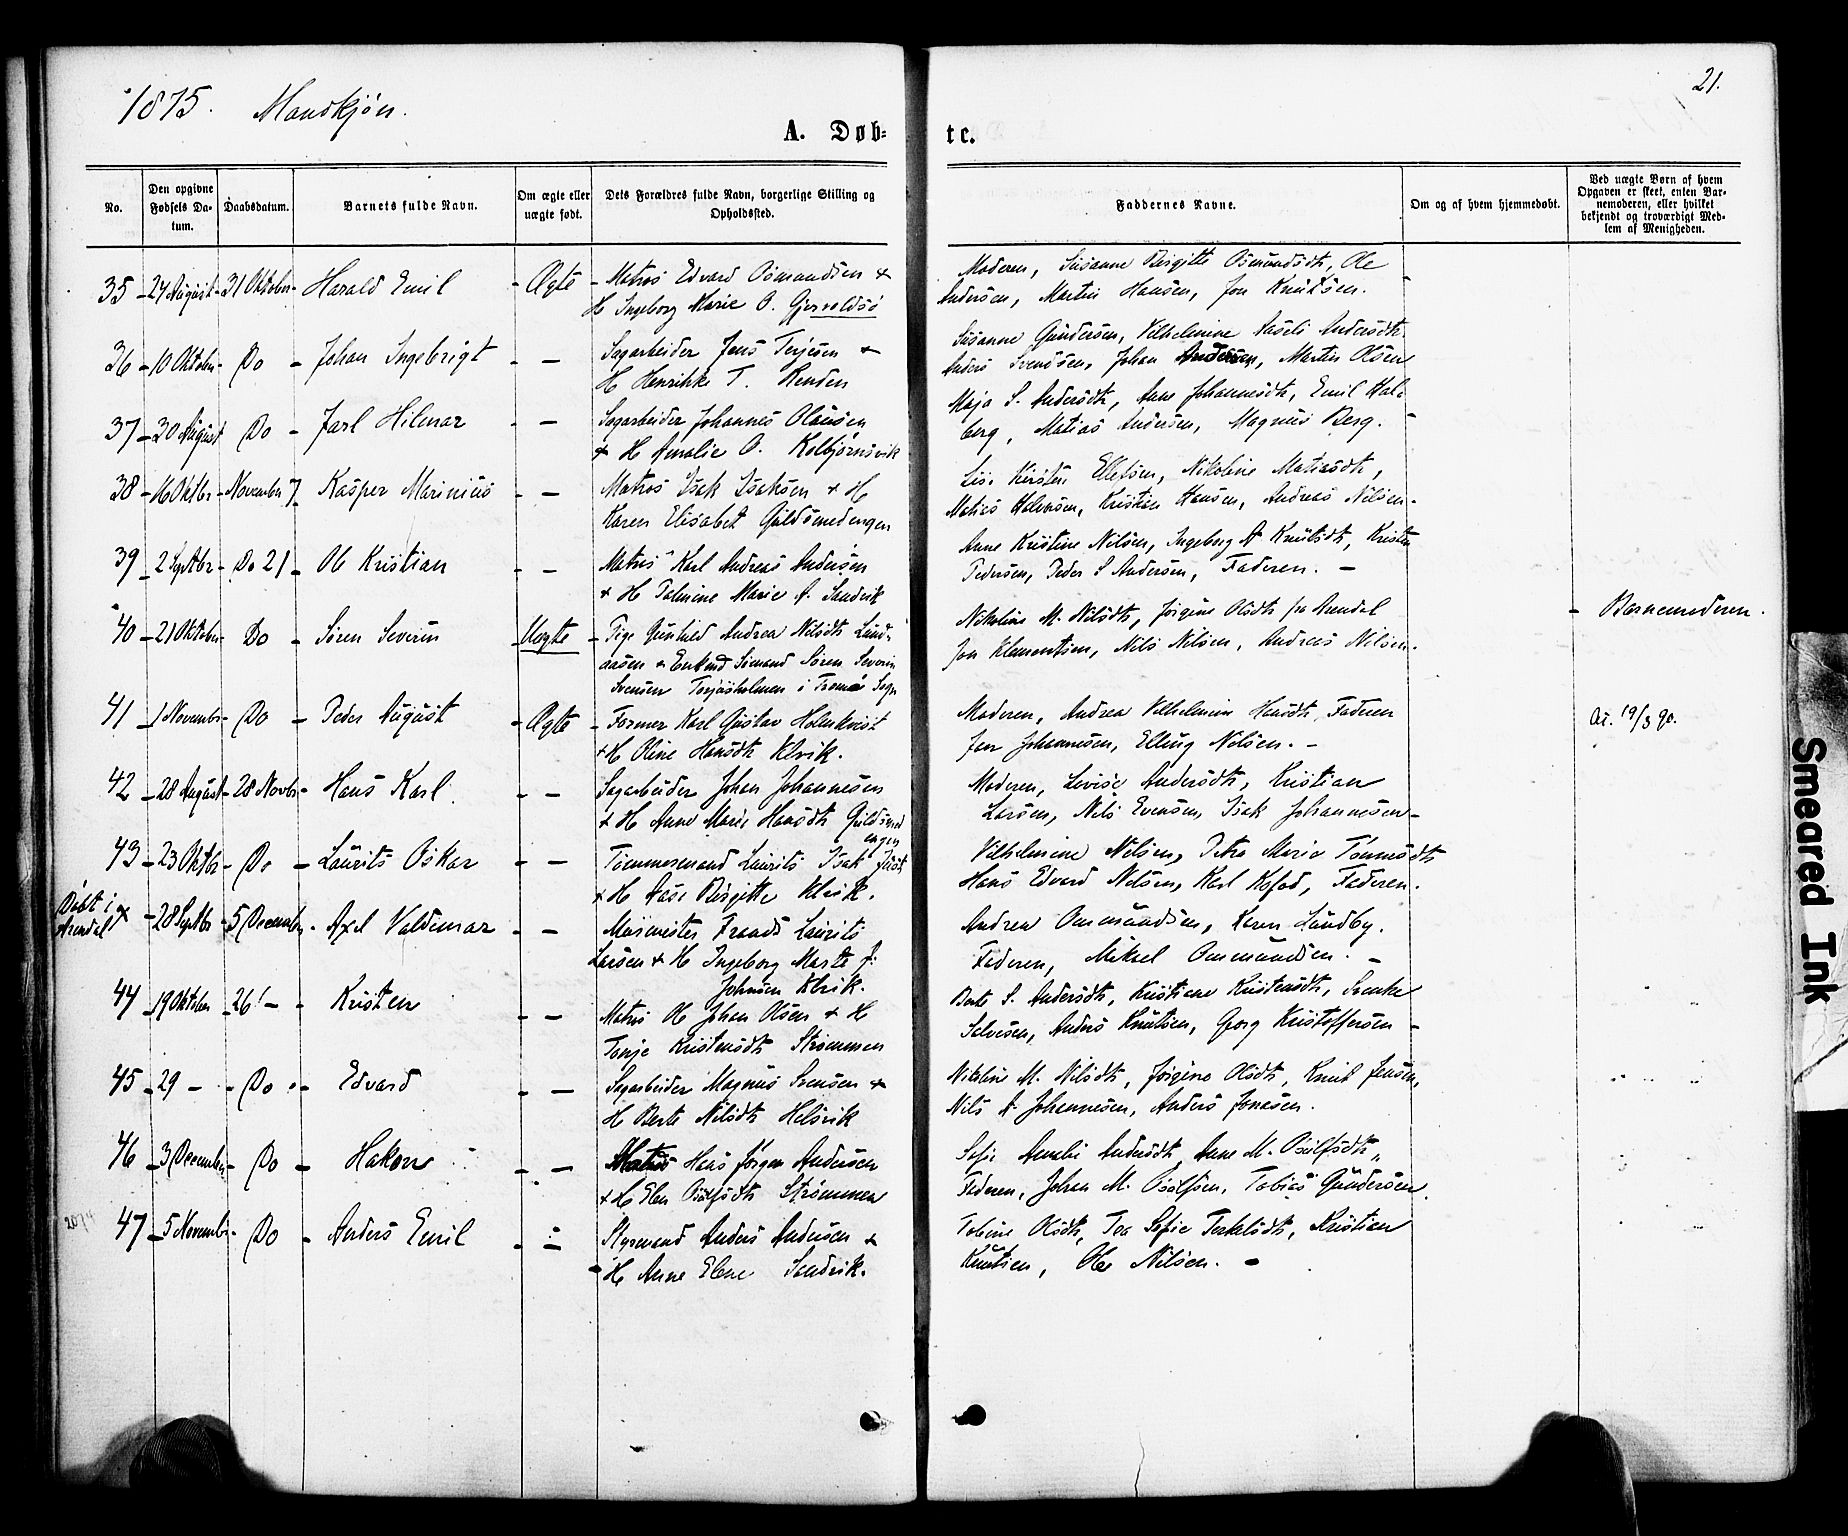 1875. Mandkjøn.
21.
A. Døb-
te.
No.
Den opgivne Fødsels Da-tum.
Daabsdatum.
Barnets fulde Navn.
Om ægte eller uægte født.
Dets Forældres fulde Navn, borgerlige Stilling og Opholdssted.
Faddernes Navne.
Om og af hvem hjemmedøbt.
Ved uægte Børn af hvem Opgaven er skeet, enten Bar-nemoderen, eller hvilket bekjendt og troværdigt Med-lem af Menigheden.
35 - 24 August - 31 Oktober - Harald Emil - Ægte - Matros Edvard Osmundsen +
H Ingeborg Marie O. Gjervoldsø
Moderen, Susanne Birgitte Osmundsdtr, Ole
Andersen, Martin Hansen, Jon Knutsen. -
36 - 10 Oktober - Do - Johan Ingebrigt - - Sagarbeider Jens Terjesen +
H Henrikke T. Renden
Susanne Gundersen, Vilhelmine Andersdtr.
Anders Svendsen, Johan Andersen, Martin Olsen
37 - 30 August Do - Jarl Hilmar - - Sagarbeider Johannes Olausen
+ H Amalie O. Kolbjørnsvik
Maja S. Andersdtr, Anne Johannesdtr, Emil Hal-
berg, Matias Andersen, Magnus Berg. -
38 - 16 Oktbr - November 7 - Kasper Marinius - - Matros Isak Isaksen + H
Karen Elisabet Guldsmedengen
Kirsten Ellefsen, Nikoline Matiasdtr,
Matias Halvorsen, Kristian Hansen, Andreas Nilsen -
39 - 2 Septbr - Do 21 - Ole Kristian - - Matros Karl Andreas Andersen
+ H Palmine Marie A. Sandvik
Anne Kristine Nilsen, Ingeborg A Knutsdtr, Kristen
Pedersen, Peder S Andersen, Faderen. -
40 - 21 Oktober - Do - Søren Severin Uægte - Pige Gunhild Andrea Nilsdtr Lund-
aasen + Enkemd Sømand Søren Severin
Svensen Torjusholmen i Tromø Sogn
Nikoline M. Nilsdtr, Jørgine Olsdtr fra Arendal
Jon Klementsen, Nils Nilsen, Andreas Nilsen.
- Barnemoderen.
41 - 1 Novembr - Do - Peder August - Ægte - Former Karl Gustav Holmkvist
+ H Oline Hansdtr Klevik.
Moderen, Andrea Vilhelmine Hansdtr, Faderen
Jens Johannesen, Elling Nilsen. -
At. 19/3 90.
42 - 28 August - 28 Novbr - Hans Karl. - - Sagarbeider Johan Johannesen
+ H Anne Marie Hansdtr Guldsmed
engen
Moderen, Lovise Andersdtr, Kristian
Larsen, Nils Evensen, Isak Johannesen -
43 - 23 Oktbr - Do - Laurits Oskar - - Tømmermand Laurits Isak Just
+ H Aase Birgitte Klevik.
Vilhelmine Nilsen, Petra Marie Tønnesdtr
Hans Edvard Nilsen, Karl Kofod, Faderen.
Døbt i
Arendal x - 28 Septbr - 5 December - Axel Valdemar - - Murmester Frands Laurits
Larsen + H Ingeborg Marte f:
Johnsen Klevik.
Andrea Ommundsen, Karen Lundby.
Faderen, Mikael Ommundsen. -
44 - 19 Oktober - 26 - Kristen - - Matros Ole Johan Olsen + H
Tonje Kristensdtr Strømmen
Berte S. Andersdtr, Kristiane Kristensdtr, Svenke
Salvesen, Anders Knutsen, Georg Kristoffersen -
45 - 29 - - Do - Edvard - - Sagarbeider Magnus Svensen +
H Berte Nilsdtr Helsvik
Nikoline M. Nilsdtr, Jørgine Olsdtr, Knut Jensen,
Nils A Johannesen, Anders Jonasen.
46 - 3 December - Do - Hakon - - Matros Hans Jørgen Andersen
+ H Elen Osulfsdtr Strømmen
Sofie Amalie Andersdtr, Anne M. Osulfsdtr,
Faderen, Johan M. Osulfsen, Tobias Gundersen.
47 - 5 Novembr - Do - Anders Emil - - Styrmand Anders Andersen +
H Anne Elene Sandvik.
Tobine Olsdtr, Tea Sofie Terkelsdtr, Kristian
Knutsen, Ole Nilsen. -
Smeared Ink